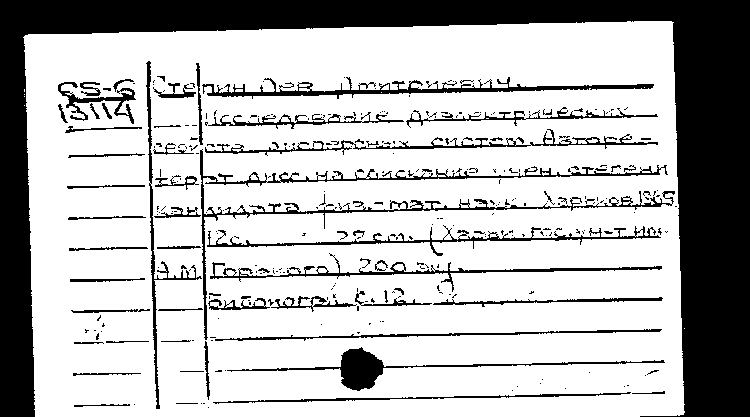 65-6
13114
Степин Лев Дмитриевич.
Исследование диэлектрических
свойств дисперсных систем. Авторе-
ферат дисс. на соискание учен. степени
кандидата физ.-мат. наук. Харьков, 1965
12с. 22 см. (Харьк. гос. ун-т им.
А.М. Горького). 200 экз.
Библиогр. с. 12.